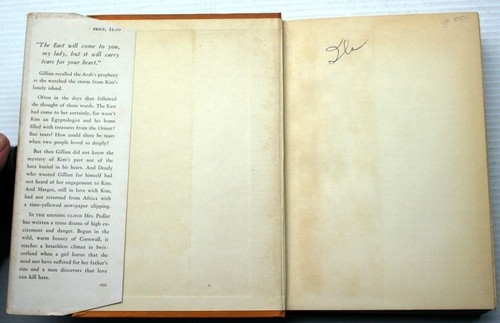 PRICE, $2.00
"The East will come to you,
my lady, but it will carry
tears for your heart."
Gillian recalled the Arab's prophecy
as she watched the storm from Kim's
lonely island.
Often in the days that followed
she thought of those words. The East
had come to her certainly, for wasn't
Kim an Egyptologist and his home
filled with treasures from the Orient?
But tears? How could there be tears
when two people loved so deeply?
But then Gillian did not know the
mystery of Kim's past nor of the
hate buried in his heart. And
who wanted Gillian for himself had
not heard of her engagement to Kim.
And Margot, still in love with Kim,
had not returned from Africa with
a time-yellowed newspaper clipping.
IN THE SHINING CLOUD Mrs. Pedler
has written a tense drama of high ex-
citement and danger. Begun in the
wild, warm beauty of Cornwall, it
reaches a breathless climax in Swit-
zerland when a girl learns that she
need not have suffered for her father's
sins and a man discovers that love
can kill hate.